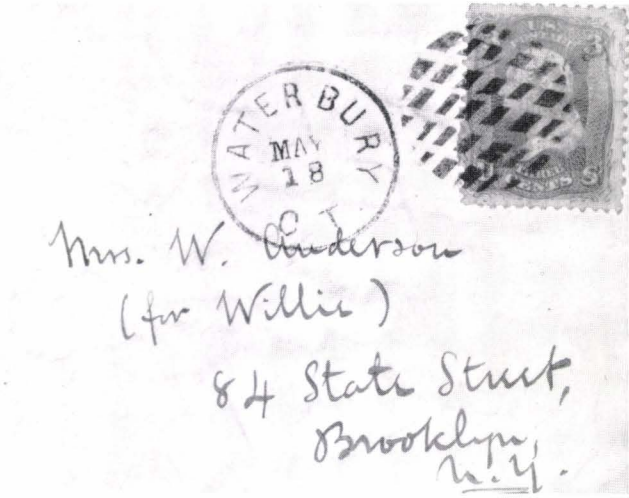 WATERBURY
MAY
18
CT
U.S.
3
CENTS S
Mrs. W. Anderson
(for Willie)
84 State Street,
Brooklyn,
N.Y.